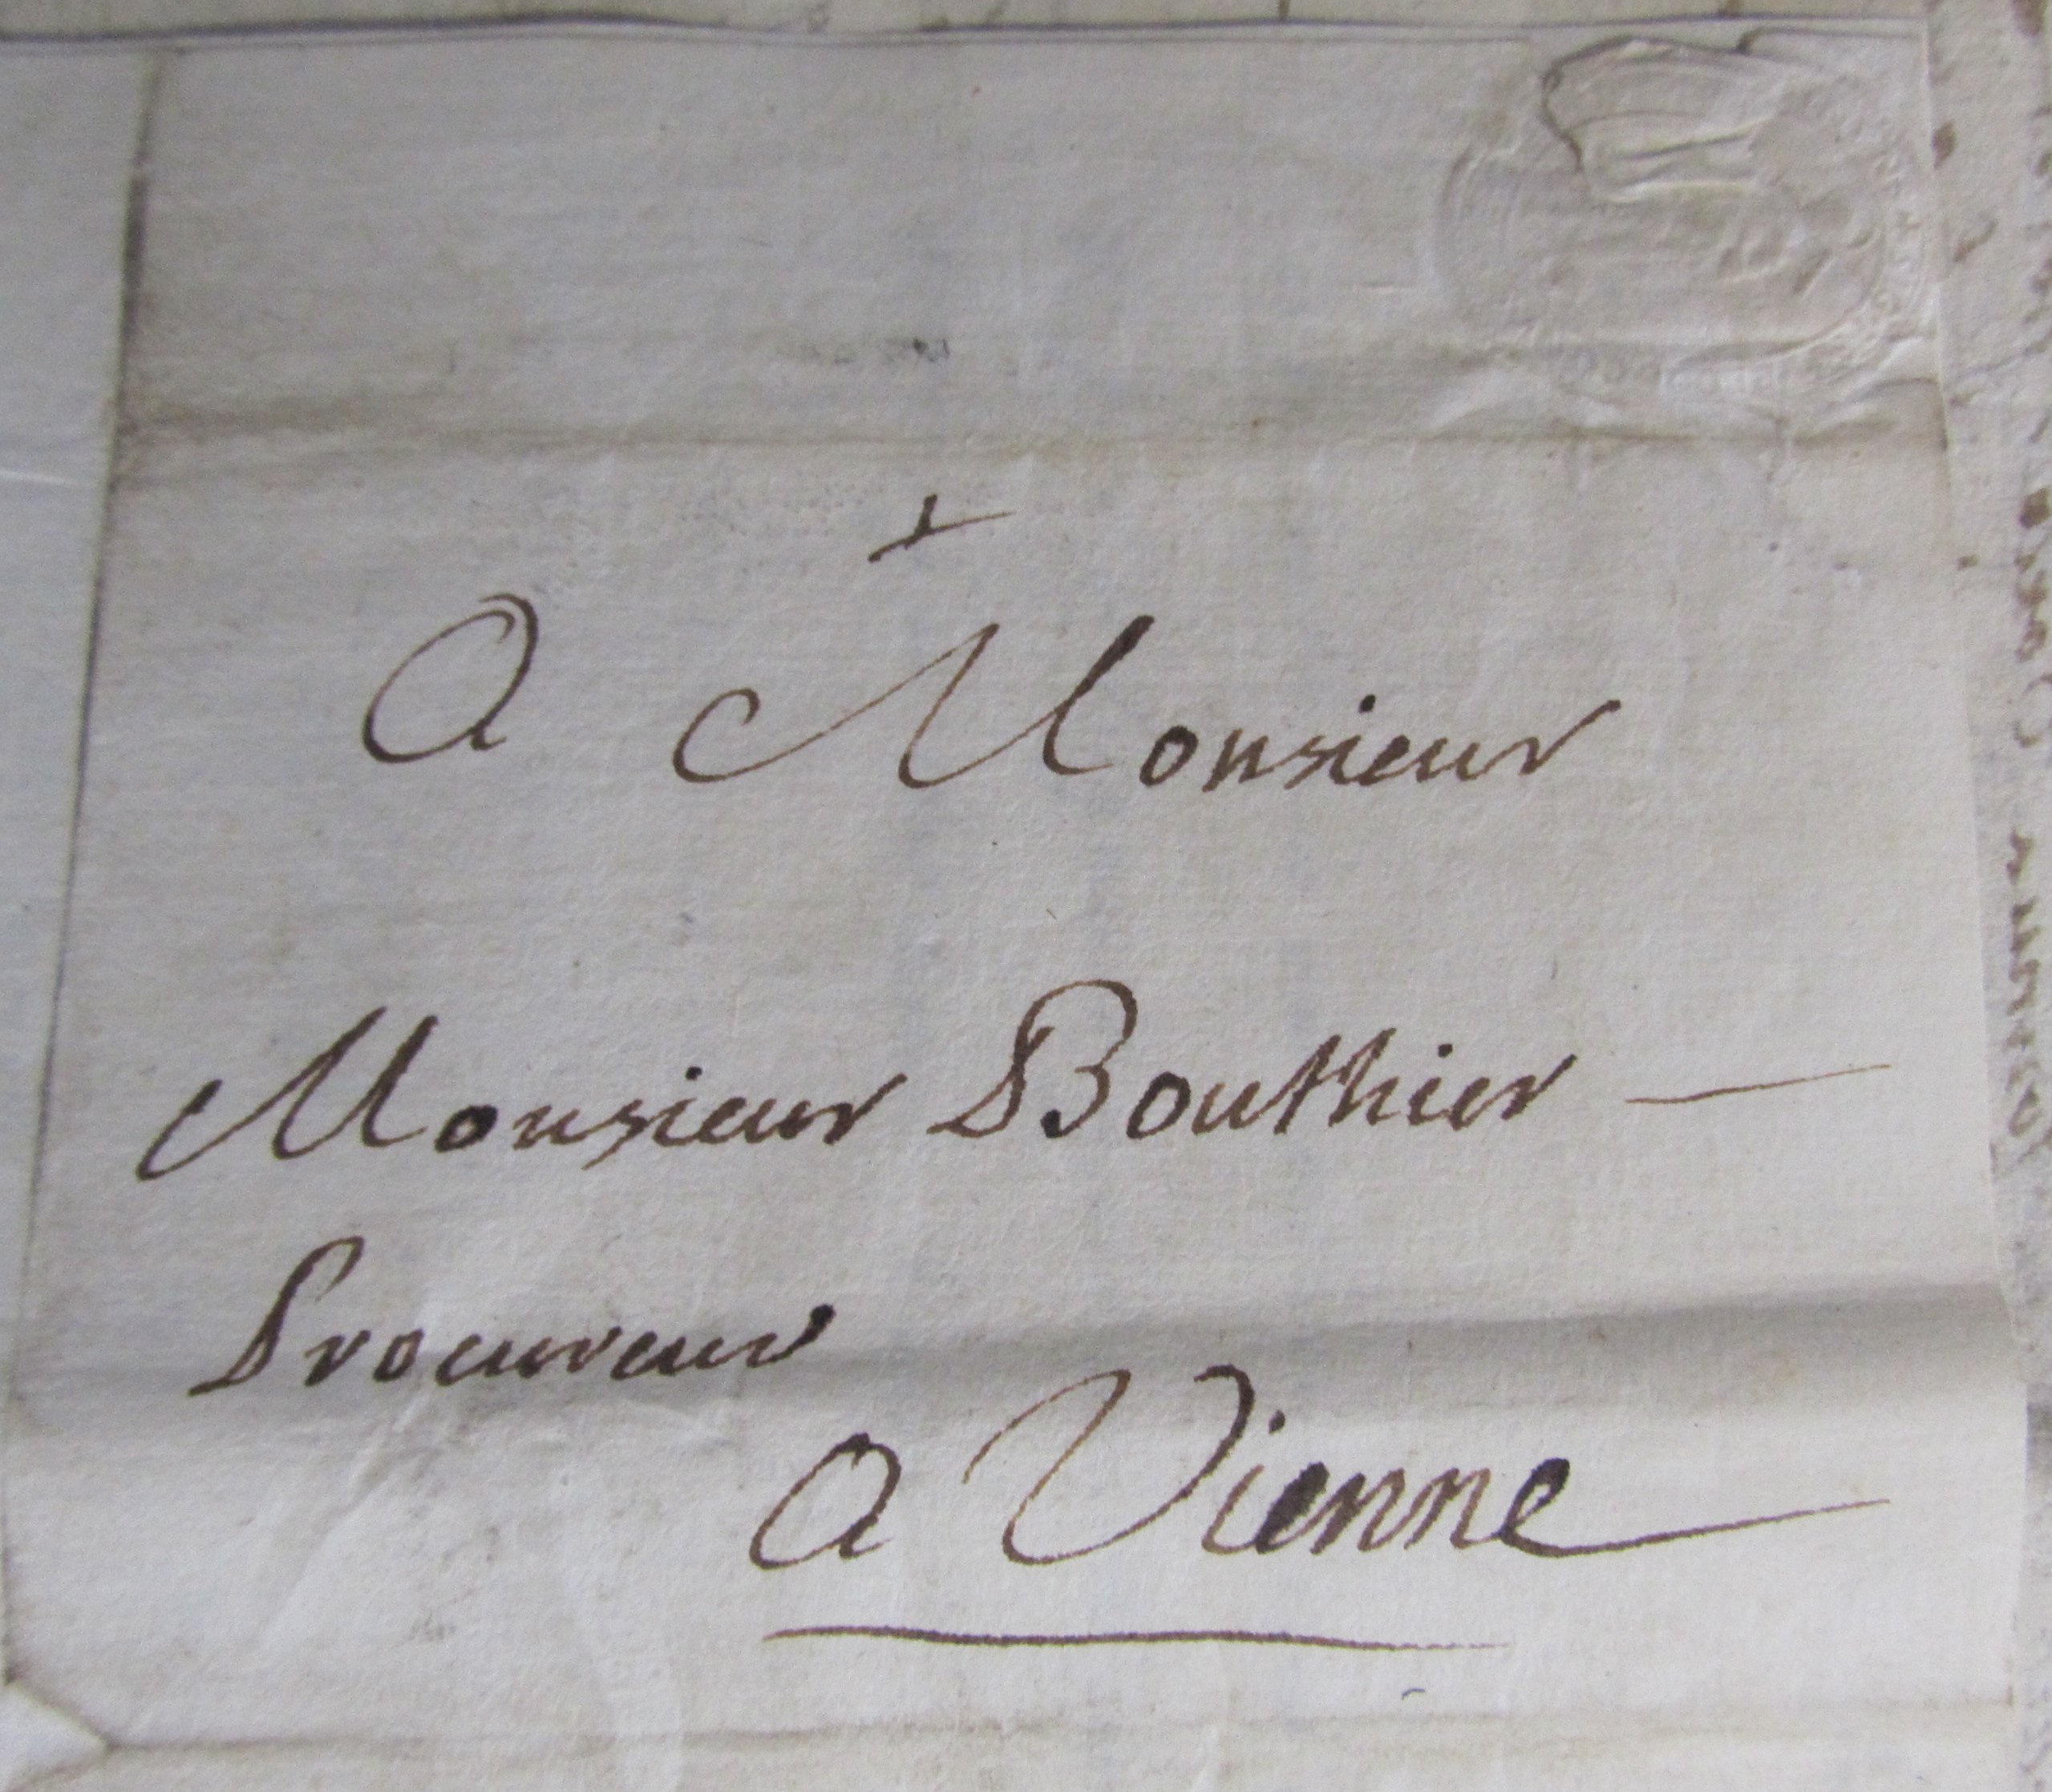 A Monsieur
Monsieur Bouthier —
Procureur
a Vienne